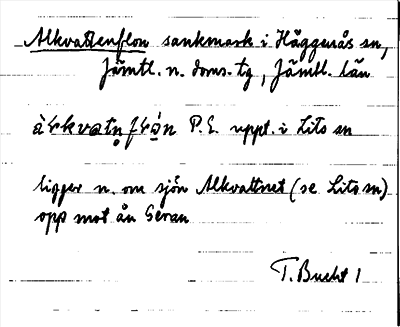 Alkvattenflon sankmark i Häggenås sn,
Jämtl. n. doms. tg, Jämtl. län
P.E. uppt. i Lits sn
ligger n. om sjön Alkvattnet (se Lits sn)
opp mot ån Geran
T. Bucht 1